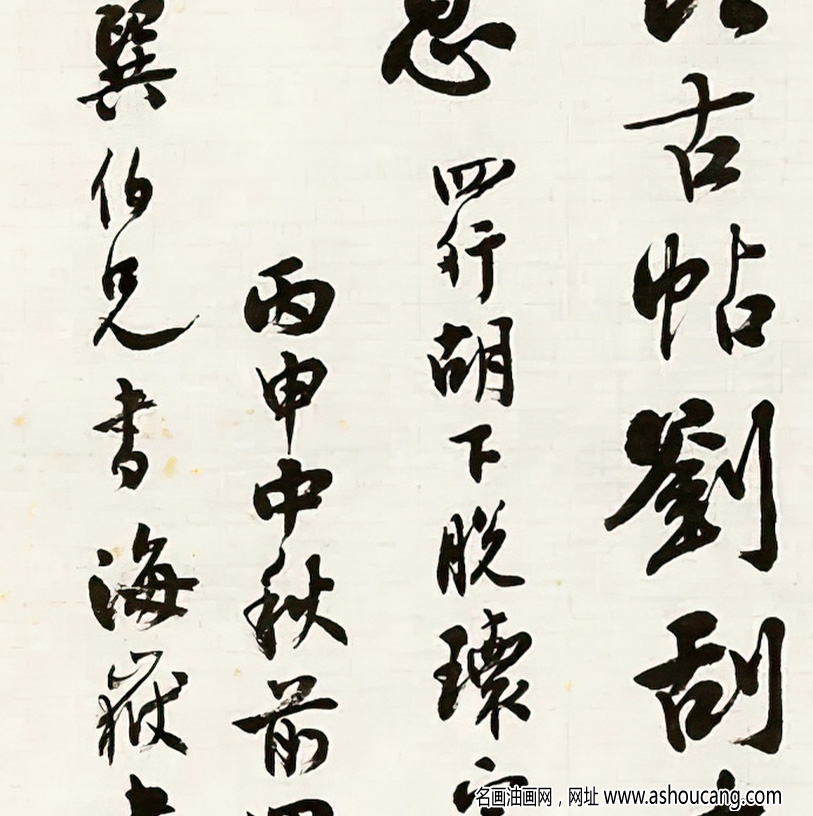 古帖劉刮
息 四行胡下脱環
丙申中秋前
巽伯兄書海嶽
名画油画网，网址 www.ashoucang.com